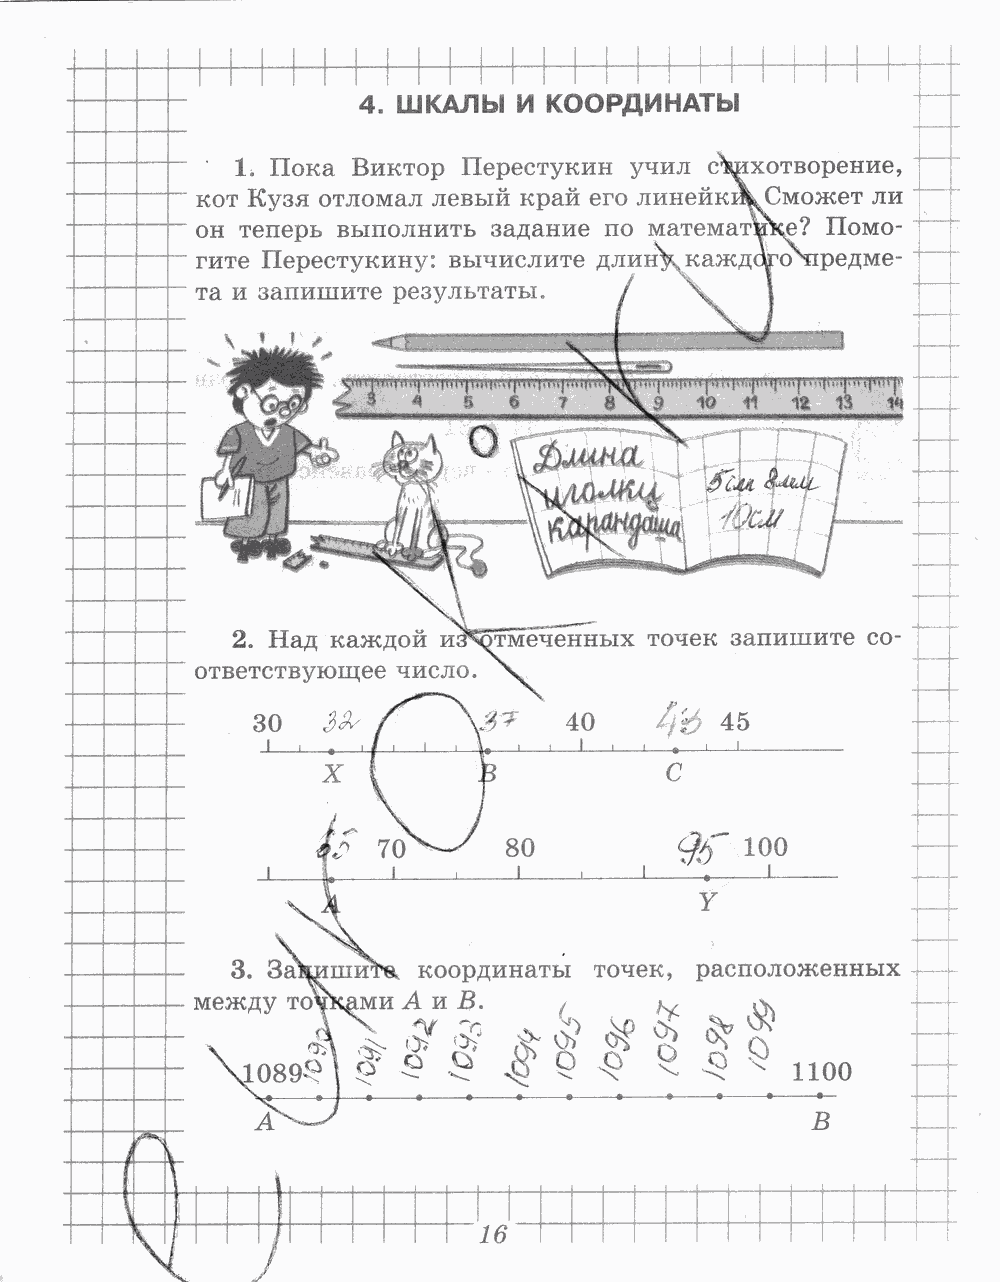 4. ШКАЛЫ И КООРДИНАТЫ
1. Пока Виктор Перестукин учил стихотворение,
кот Кузя отломал левый край его линейки. Сможет ли
он теперь выполнить задание по математике? Помо-
гите Перестукину: вычислите длину каждого предме-
та и запишите результаты.
3 4 5 6 7 8 9 10 11 12 13 14
Длина
иголки 5 см 8 мм
карандаша 10 см
2. Над каждой из отмеченных точек запишите со-
ответствующее число.
30 32 37 40 43 45
X B C
65 70 80 95 100
A Y
3. Запишите координаты точек, расположенных
между точками A и B.
1089 1090 1091 1092 1093 1094 1095 1096 1097 1098 1099 1100
A B
16